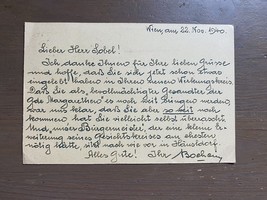 Wien, am 22. Nov. 1940.
Lieber Herr Lobel!
Ich danke Ihnen für Ihre lieben Grüsse
und hoffe, daß Sie sich jetzt schon etwas
eingelebt haben in Ihrem neuen Wirkungskreis.
Daß Sie als „bevollmächtigter Gesandter der
Gde Margarethen" es noch weit bringen werden,
war uns klar, daß Sie aber so weit noch
kommen, hat Sie vielleicht selbst überrascht.
Und „unser Bürgermeister", der eine kleine Er-
weiterung seines Gesichtskreises am ehesten
nötig hätte, sitzt nach wie vor in Hausdorf.
Alles Gute! Ihr